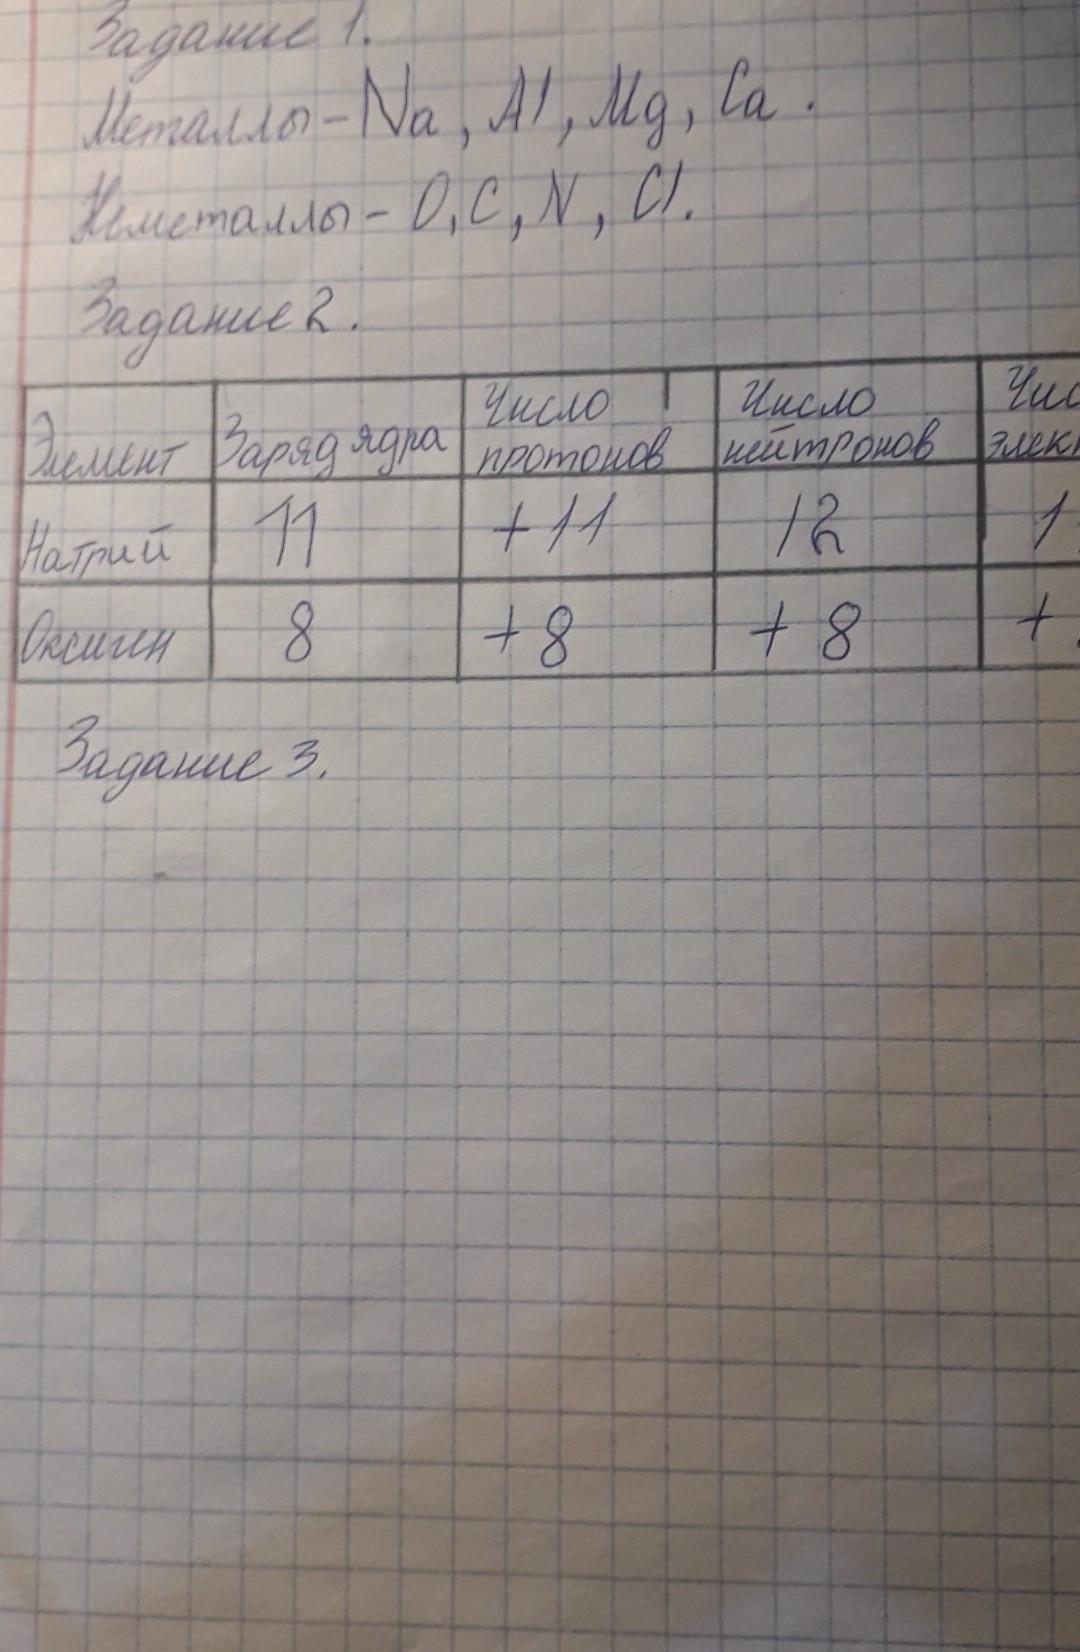 Задание 1.
Металлы - Na, Al, Mg, Ca.
Неметаллы - O, C, N, Cl.
Задание 2.
Элемент Заряд ядра Число протонов Число нейтронов Чис элект
Натрий 11 +11 12 1
Оксиген 8 +8 +8 +
Задание 3.